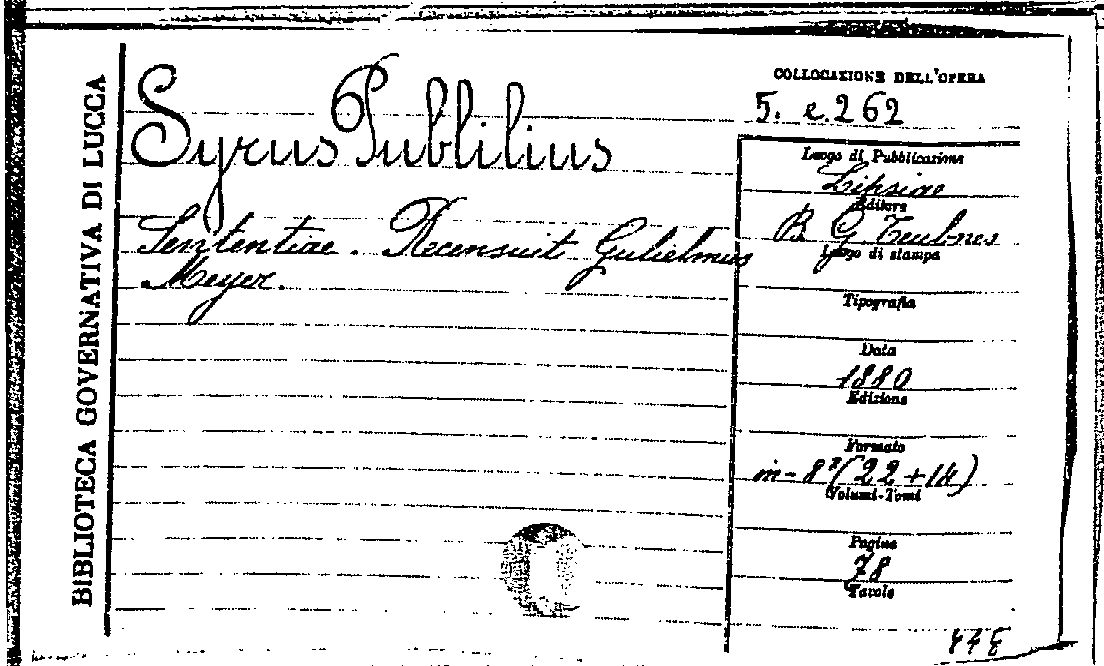 BIBLIOTECA GOVERNATIVA DI LUCCA
Syrus Publilius
Sententiae. Recensuit Gulielmus
Meyer.
COLLOCAZIONE DELL'OPERA
5. e. 262
Luogo di Pubblicazione
Lipsiae
Editore
B G Teubner
Luogo di stampa
Tipografia
Data
1880
Edizione
Formato
in-8° (22+14)
Volumi-Tomi
Pagine
78
Tavole